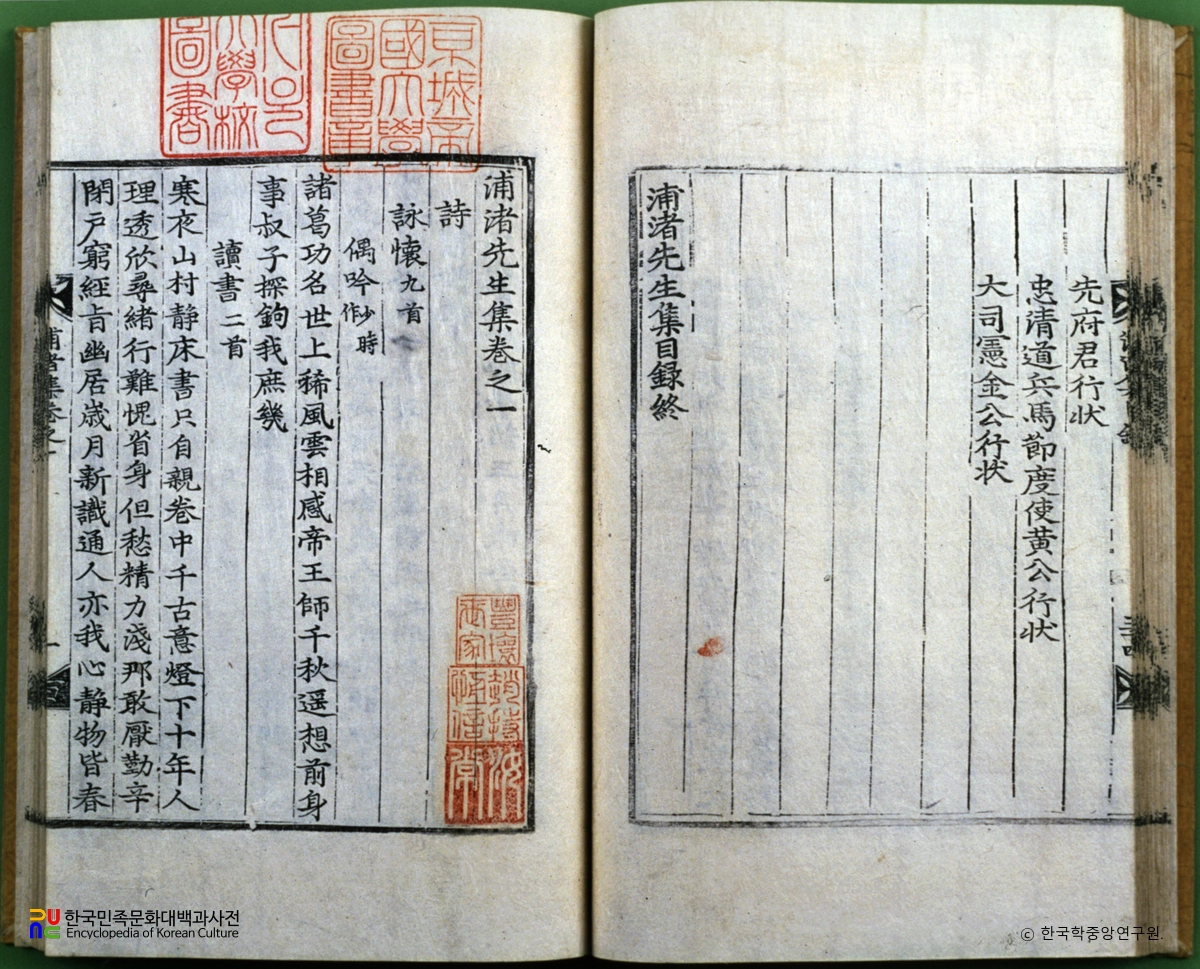 先府君行狀
忠清道兵馬節度使黃公行狀
大司憲金公行狀
浦渚先生集目錄終
浦渚先生集卷之一
詩
詠懷九首
偶吟少時作
諸葛功名世上稀風雲相感帝王師千秋遥想前身
事叔子探鉤我庶幾
讀書二首
寒夜山村静床書只自親卷中千古意燈下十年人
理透欣尋緖行難愧省身但愁精力淺那敢厭勤辛
閉戸窮經旨幽居歲月新識通人亦我心静物皆春
京城帝
國大學
圖書章
大學校
圖書
한국민족문화대백과사전
Encyclopedia of Korean Culture
© 한국학중앙연구원